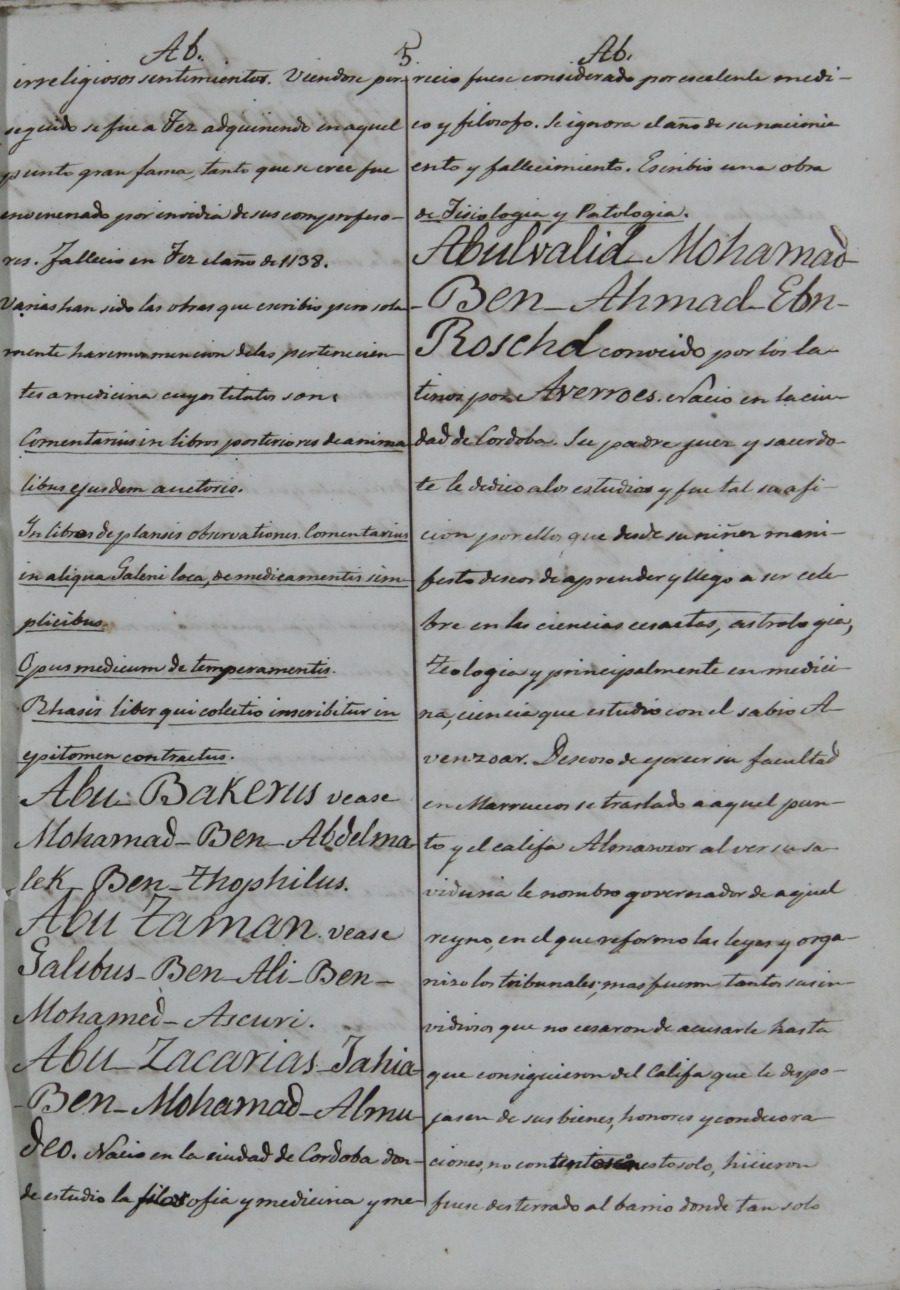 Ab.
5.
Ab.
irreligiosos sentimientos. Viendose per
seguido se fue a Fez adquiriendo en aquel
punto gran fama, tanto que se cree fue
envenenado por invidia de sus comprofeso-
res. Fallecio en Fez el año de 1138.
Varias han sido las obras que escribio pero sola-
mente haremos mencion de las pertenecien-
tes a medicina cuyos titulos son:
Comentarius in libros posteriores de anima
libus ejusdem auctoris.
In libros de plansis observationes. Comentarius
in aliqua Galeni loca, de medicamentis sim-
plicibus.
Opus medicum de temperamentis.
Rhasis liber qui colectio inscribitur in
epitomen contractus.
Abu Bakerus vease
Mohamad-Ben-Abdelma-
lek-Ben-Thophilus.
Abu Zaman. vease
Galibus-Ben-Ali-Ben-
Mohamed-Ascuri.
Abu-Zacarias-Jahia-
-Ben-Mohamad-Almu-
deo. Nacio en la ciudad de Cordoba don-
de estudio la filosofia y medicina y me-
recio fuese considerado por escelente medi-
co y filosofo. Se ignora el año de su nacimi
ento y fallecimiento. Escribio una obra
de Fisiologia y Patologia.
Abulvalid-Mohamad-
-Ben-Ahmad-Ebn-
Roschd conocido por los la-
tinos por Averroes. Nacio en la ciu-
dad de Cordoba. Su padre juez y sacerdo-
te le dedico a los estudios y fue tal su afi-
cion por ellos que desde su niñez mani-
festo deseos de aprender y llego a ser cele-
bre en las ciencias ecsactas, astrologia,
teologia y principalmente en medici-
na, ciencia que estudio con el sabio A-
venzoar. Deseoso de ejercer su facultad
en Marruecos se traslado a aquel pun-
to y el califa Almanzor al ver su sa-
viduria le nombro governador de aquel
reyno, en el que reformo las leyes y orga-
nizo los tribunales; mas fueron tantos sus in-
vidiosos que no cesaron de acusarle hasta
que consiguieron del Califa que le despo-
jasen de sus bienes, honores y condecora-
ciones, no contentos con esto solo, hicieron
fuese desterrado al barrio donde tan solo